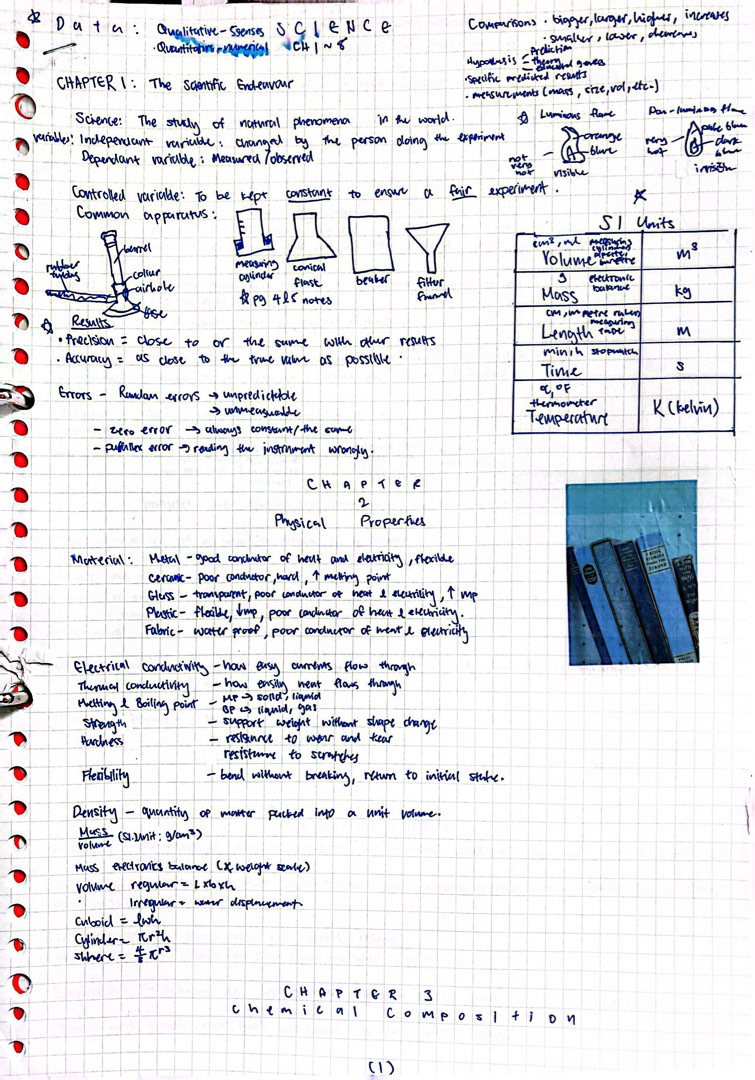 Data: Qualitative-5senses SCIENCE
• Quantitative-numerical CH 1~8
Comparisons • bigger, larger, higher, increases
• smaller, lower, decreases
Hypothesis - Prediction
- theory
- educated guess
• Specific predicted results
• measurements (mass, size, vol, etc-)
CHAPTER 1: The Scientific Endeavour
Science: The study of natural phenomena in the world.
Variables: Independant variable: changed by the person doing the experiment
Dependant variable: Measured/observed
Luminous flame
orange
blue
not very hot
visible
Non-luminous flame
pale blue
dark blue
very hot
invisible
Controlled variable: To be kept constant to ensure a fair experiment.
Common apparatus:
barrel
rubber tubing
collar
airhole
base
measuring cylinder
conical flask
beaker
filter funnel
pg 4 & 5 notes
SI Units
cm³, ml measuring cylinder
Volume burette m³
g electronic balance
Mass kg
cm, m metre ruler, measuring tape
Length m
min, h stopwatch
Time s
°C, °F
thermometer
Temperature K (kelvin)
Results
• Precision = close to or the same with other results
• Accuracy = as close to the true value as possible.
Errors - Random errors → unpredictable
→ unmeasurable
- zero error → always constant/the same
- parallex error → reading the instrument wrongly.
CHAPTER
2
Physical Properties
Material: Metal - good conductor of heat and electricity, flexible
Ceramic - poor conductor, hard, ↑ melting point
Glass - transparent, poor conductor of heat & electrility, ↑ mp
Plastic - flexible, ↓mp, poor conductor of heat & electricity.
Fabric - water proof, poor conductor of heat & electricity
Electrical conductivity - how easy currents flow through
Thermal conductivity - how easily heat flows through
Melting & Boiling point - MP → solid, liquid
BP → liquid, gas
Strength - support weight without shape change
Hardness - resistance to wear and tear
resistance to scratches
Flexibility - bend without breaking, return to initial state.
Density - quantity of matter packed into a unit volume.
Mass
volume (SI.Unit: g/cm³)
Mass electronics balance (X weight scale)
Volume regular = L x b x h
• Irregular = water displacement
Cuboid = lwh
Cylinder = πr²h
sphere = 4/3 πr³
CHAPTER 3
Chemical Composition
(1)